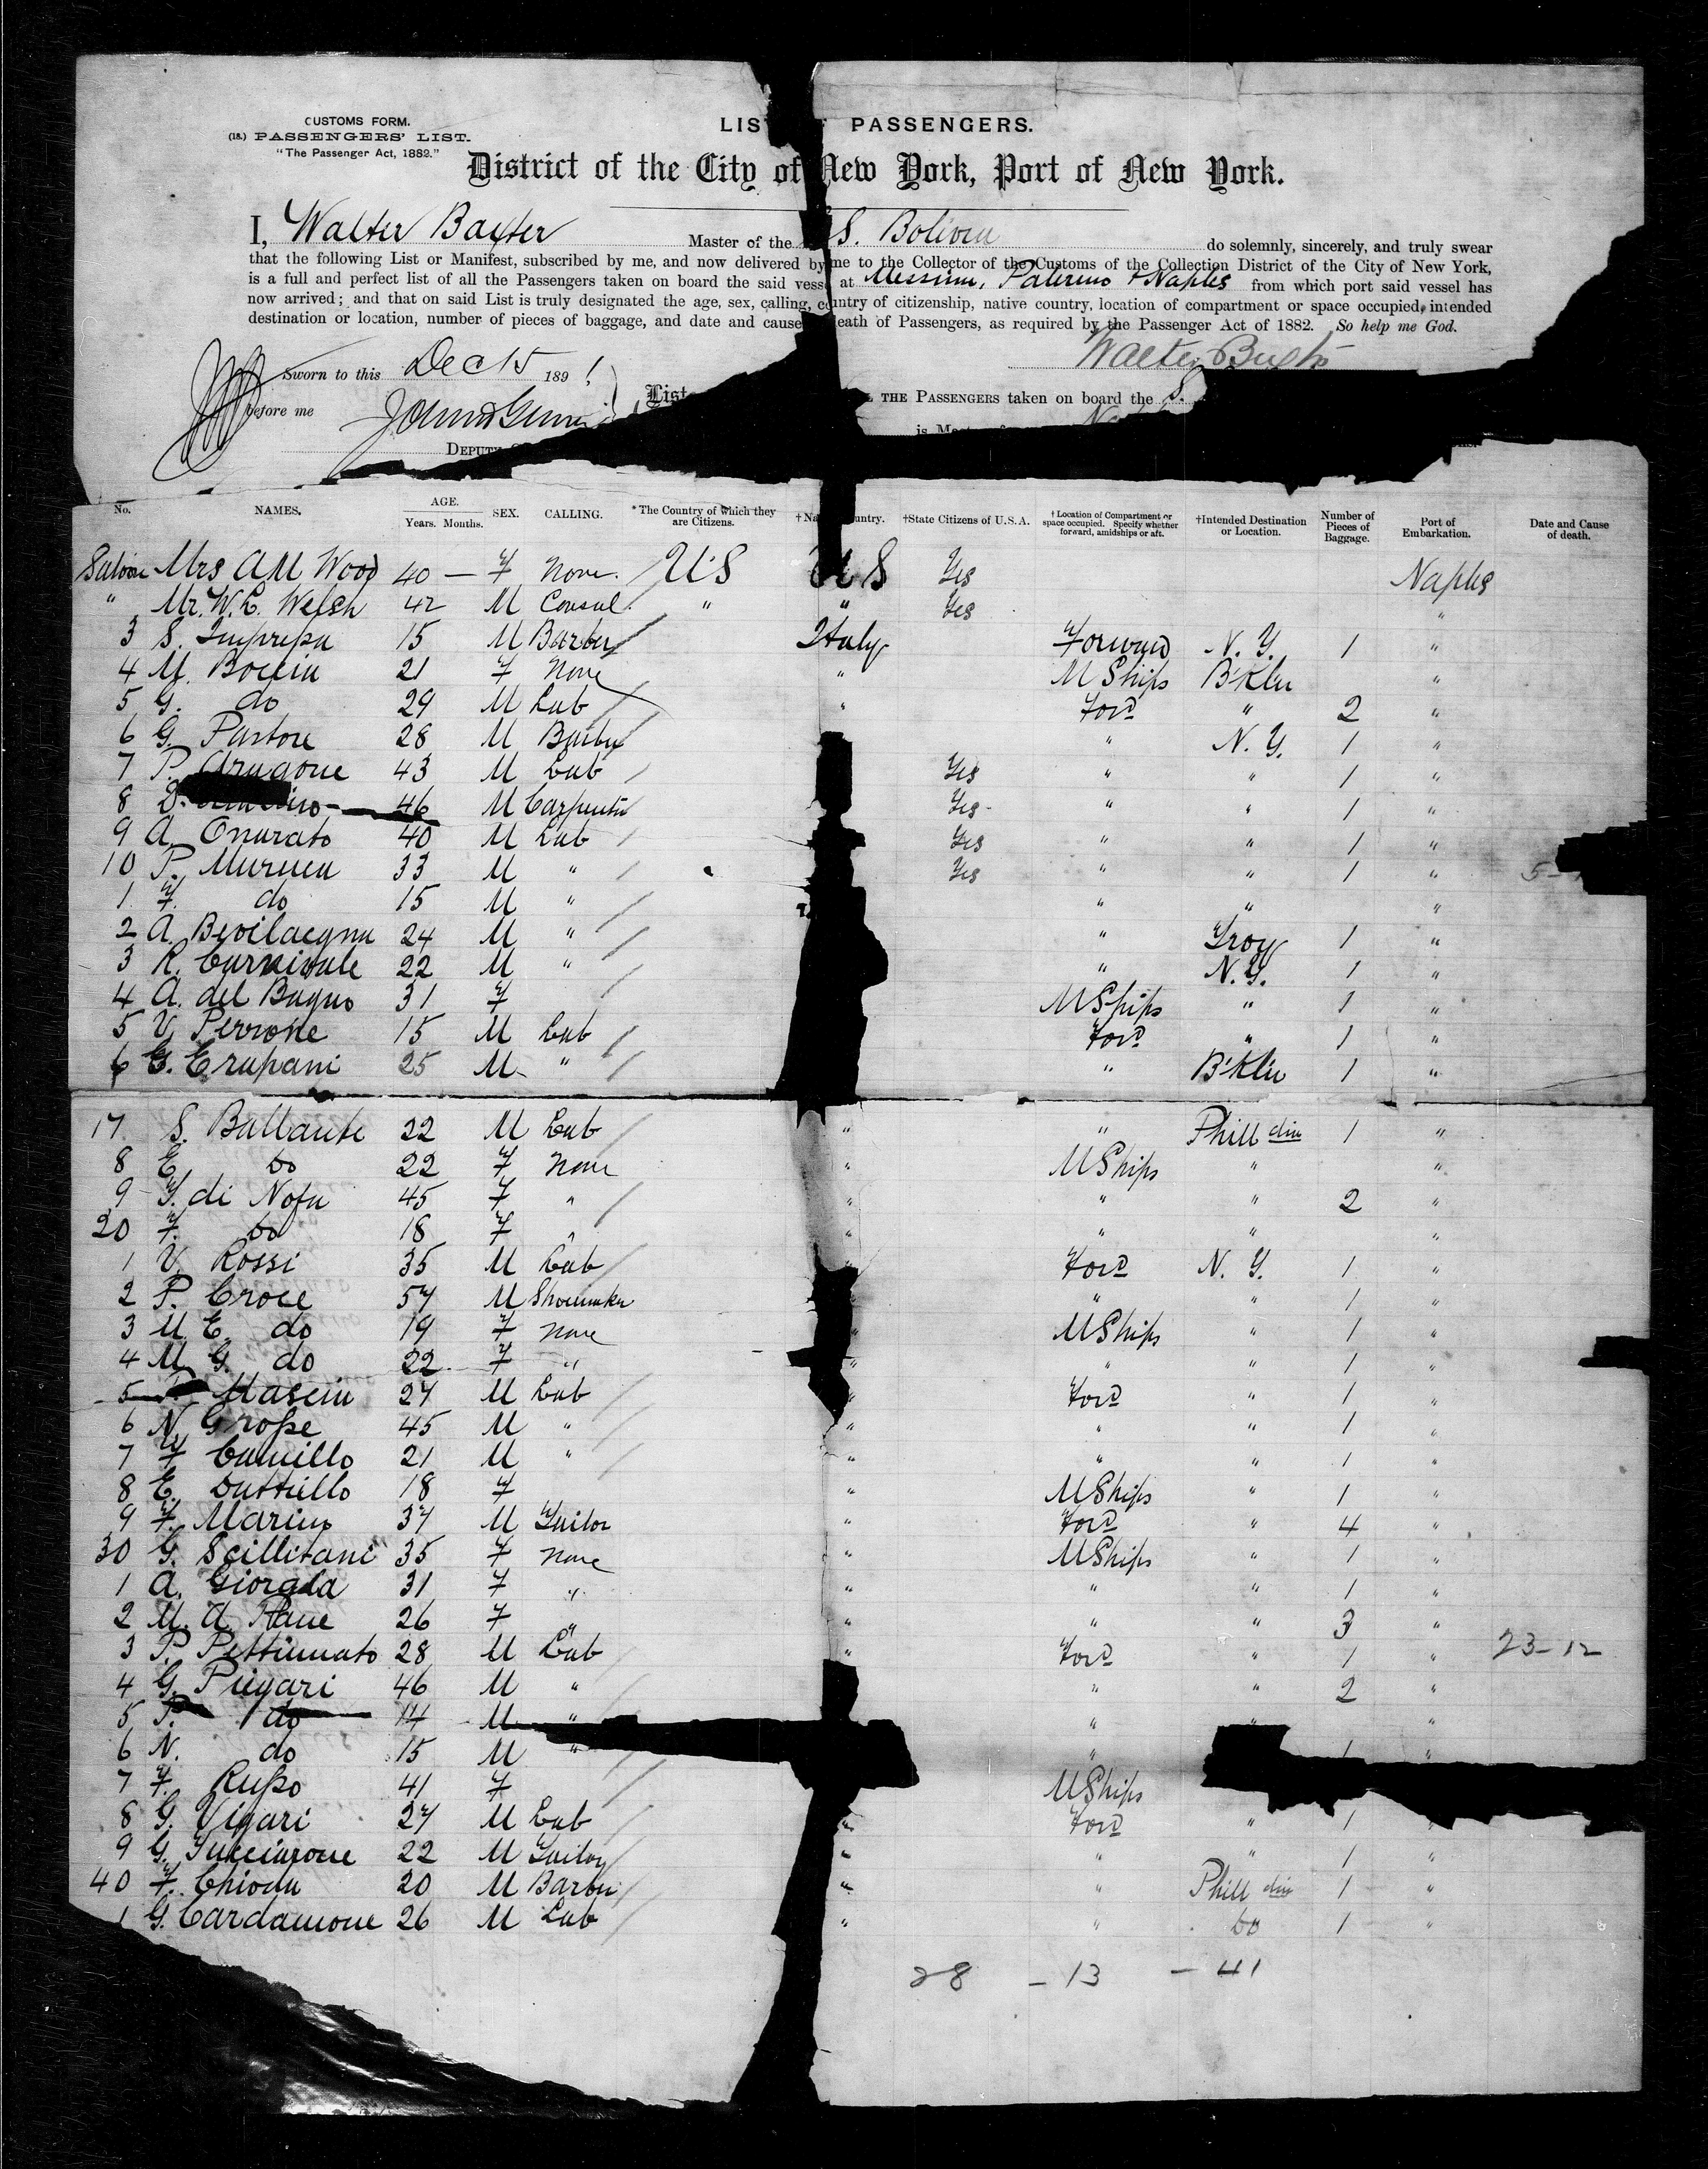 CUSTOMS FORM.
(18.) PASSENGERS' LIST.
"The Passenger Act, 1882."
LIS PASSENGERS.
District of the City of New York, Port of New York.
I, Walter Baxter Master of the S. Bolivia do solemnly, sincerely, and truly swear
that the following List or Manifest, subscribed by me, and now delivered by me to the Collector of the Customs of the Collection District of the City of New York,
is a full and perfect list of all the Passengers taken on board the said vesse at Messina, Palermo + Naples from which port said vessel has
now arrived; and that on said List is truly designated the age, sex, calling, country of citizenship, native country, location of compartment or space occupied, intended
destination or location, number of pieces of baggage, and date and cause eath of Passengers, as required by the Passenger Act of 1882. So help me God.
Walter Baxter
Sworn to this Dec 15 1891
before me
List THE PASSENGERS taken on board the S.
DEPUTY is
No. NAMES. AGE. Years. Months. SEX. CALLING. *The Country of which they are Citizens. †Na untry. †State Citizens of U.S.A. †Location of Compartment or space occupied. Specify whether forward, amidships or aft. †Intended Destination or Location. Number of Pieces of Baggage. Port of Embarkation. Date and Cause of death.
Saloon Mrs A M Wood 40 — F None. U S U S Yes Naples
" Mr. W. L. Welsh 42 M Consul " " Yes "
3 S. 15 M Barber Italy Forward N. Y. 1 "
4 M. Boccia 21 F None " M Ships B'Kln "
5 G. do 29 M Lab " Ford " 2 "
6 G. Pastore 28 M Barber " N. Y. 1 "
7 P. Aragone 43 M Lab Yes " " 1 "
8 D. 46 M Carpenter Yes " " 1 "
9 A. Onurato 40 M Lab Yes " " 1 "
10 P. 33 M " Yes " " 1 " 5-
1 F. do 15 M " " " "
2 A. Bevilacqua 24 M " " Troy 1 "
3 R. Carnivale 22 M " " N.Y. 1 "
4 A. del Bagno 31 F M Ships " 1 "
5 V. Perrone 15 M Lab Ford " 1 "
6 G. Erapani 25 M " " B'Kln 1 "
17 S. Ballante 22 M Lab " " Phill dia 1 "
8 E. do 22 F None " M Ships " "
9 F. di Nofa 45 F " " " " 2 "
20 F. do 18 F " " " " "
1 V. Rossi 35 M Lab " Ford N. Y. 1 "
2 P. Croce 57 M Shoemaker " " " 1 "
3 M. E. do 19 F None " M Ships " 1 "
4 M. G. do 22 F " " " " 1 "
5 Mascia 27 M Lab " Ford " 1 "
6 N. Grosse 45 M " " " " 1 "
7 F. Camillo 21 M " " " " 1 "
8 E. Dattillo 18 F " M Ships " 1 "
9 F. Marino 37 M Tailor " Ford " 4 "
30 G. Scillitani 35 F None " M Ships " 1 "
1 A. Giorgla 31 F " " " " 1 "
2 M. A. 26 F " " " " 3 "
3 P. Pettinnato 28 M Lab " Ford " 1 " 23-12
4 G. Piegari 46 M " " " 2 "
5 P. do 14 M " " "
6 N. do 15 M " " 1 "
7 F. Russo 41 F M Ships
8 G. Vigari 27 M Lab " Ford " 1 "
9 G. Tucciarone 22 M Tailor " " " 1 "
40 F. Chioda 20 M Barber " " Phill dia 1 "
1 G. Cardamone 26 M Lab " " do 1 "
28 — 13 — 41